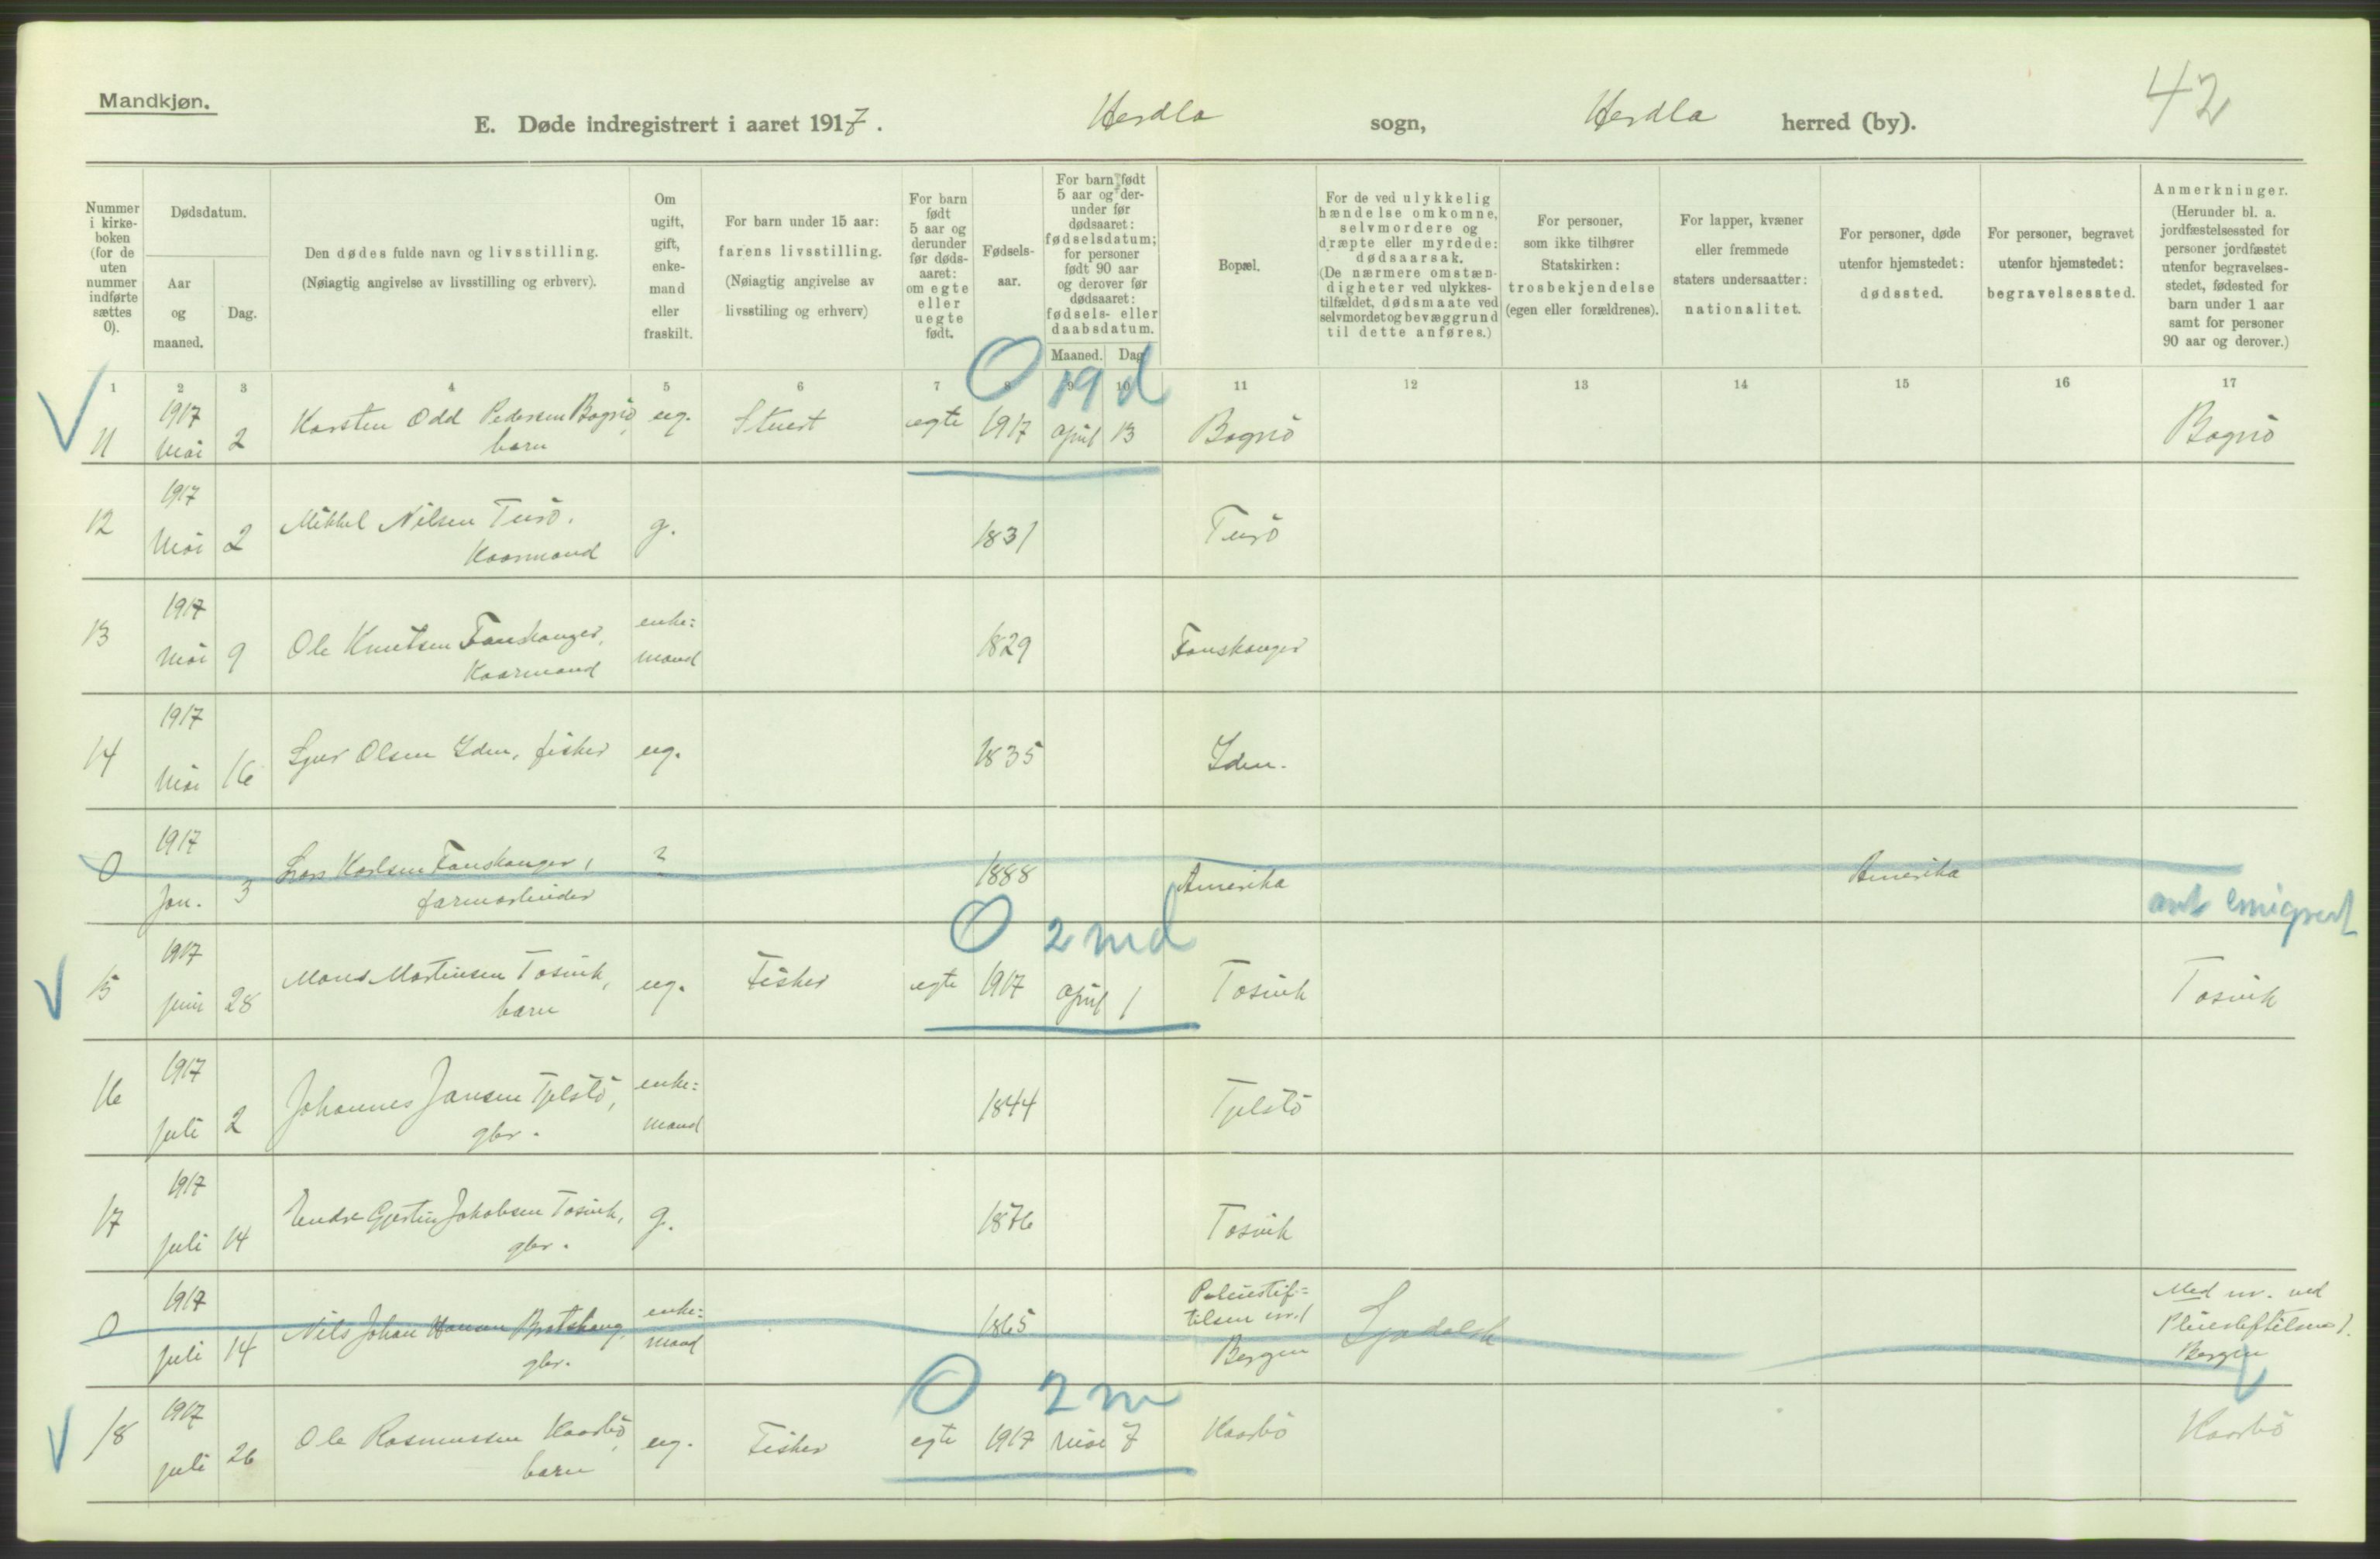 Mandkjøn.
42
E. Døde indregistrert i aaret 1917. Herdla sogn, Herdla herred (by).
Nummer i kirke-boken (for de uten nummer indførte sættes 0).
Dødsdatum.
Aar og maaned.
Dag.
Den dødes fulde navn og livsstilling.
(Nøiagtig angivelse av livsstilling og erhverv).
Om ugift, gift, enke-mand eller fraskilt.
For barn under 15 aar: farens livsstilling.
(Nøiagtig angivelse av livsstiling og erhverv)
For barn født 5 aar og derunder før døds-aaret: om egte eller uegte født.
Fødsels-aar.
For barn født 5 aar og der-under før dødsaaret: fødselsdatum; for personer født 90 aar og derover før dødsaaret: fødsels- eller daabsdatum.
Maaned. Dag
Bopæl.
For de ved ulykkelig hændelse omkomne, selvmordere og dræpte eller myrdede: dødsaarsak.
(De nærmere omstæn-digheter ved ulykkes-tilfældet, dødsmaate ved selvmordet og bevæggrund til dette anføres.)
For personer, som ikke tilhører Statskirken: trosbekjendelse (egen eller forældrenes).
For lapper, kvæner eller fremmede staters undersaatter: nationalitet.
For personer, døde utenfor hjemstedet: dødssted.
For personer, begravet utenfor hjemstedet: begravelsessted.
Anmerkninger.
(Herunder bl. a. jordfæstelsessted for personer jordfæstet utenfor begravelses-stedet, fødested for barn under 1 aar samt for personer 90 aar og derover.)
0 19 d
1 2 3 4 5 6 7 8 9 10 11 12 13 14 15 16 17
11 1917 Mai 2 Karsten Odd Pedersen Bognø, barn ug. Stuert egte 1917 april 13 Bognø Bognø
12 1917 Mai 2 Mikkel Nilsen Turø. Kaarmand g. 1831 Turø
13 1917 Mai 9 Ole Knutsen Fauskanger, Kaarmand enke=mand 1829 Fauskanger
14 1917 Mai 16 Sjur Olsen Iden, fisker ug. 1835 Iden.
0 1917 Jan. 3 Lars Karlsen Fauskanger, farmarbeider ? 1888 Amerika Amerika
ant emigrert
0 2 md
15 1917 juni 28 Mons Martinsen Tosvik, barn ug. Fisker egte 1917 april 1 Tosvik Tosvik
16 1917 juli 2 Johannes Jansen Tjelstö, gbr. enke=mand 1844 Tjelstö
17 1917 juli 14 Endre Gjertin Jakobsen Tosvik, gbr. g. 1876 Tosvik
0 1917 juli 14 Nils Johan Hansen Bratshaug, gbr. enke=mand 1865 Pleiestif=tilsen nr. 1 Bergen Spedalsk Med nr. ved Pleiestiftelsen 1. Bergen
0 2 m
18 1917 juli 26 Ole Rasmussen Kaarbö, barn ug. Fisker egte 1917 Mai 7 Kaarbö Kaarbö